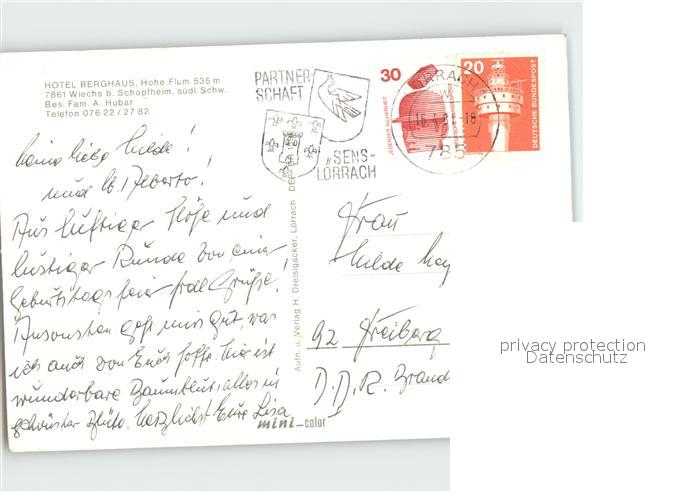 HOTEL BERGHAUS, Hohe Flum 535 m
7861 Wiechs b. Schopfheim, südl. Schw.
Bes. Fam. A. Hubar
Telefon 076 22 / 27 82
PARTNER-
SCHAFT
SENS-
LÖRRACH
LÖRRACH
785
30
JEDERZEIT SICHERHEIT
20
DEUTSCHE BUNDESPOST
Meine liebe Hilde!
und lb. Alberto!
Aus luftiger Höhe und
lustiger Runde von einer
Geburtstagsfeier frdl Grüße!
Ansonsten geht mirs gut, was
ich auch von Euch hoffe. Hier ist
wunderbare Baumblust, alles in
schönster Blüte. Herzlichst Eure Lisa
Aufn. u. Verlag H. Dreisigacker, Lörrach
mini-color
Frau
Hilde
92 Freiberg
D.D.R. Brand
privacy protection
Datenschutz